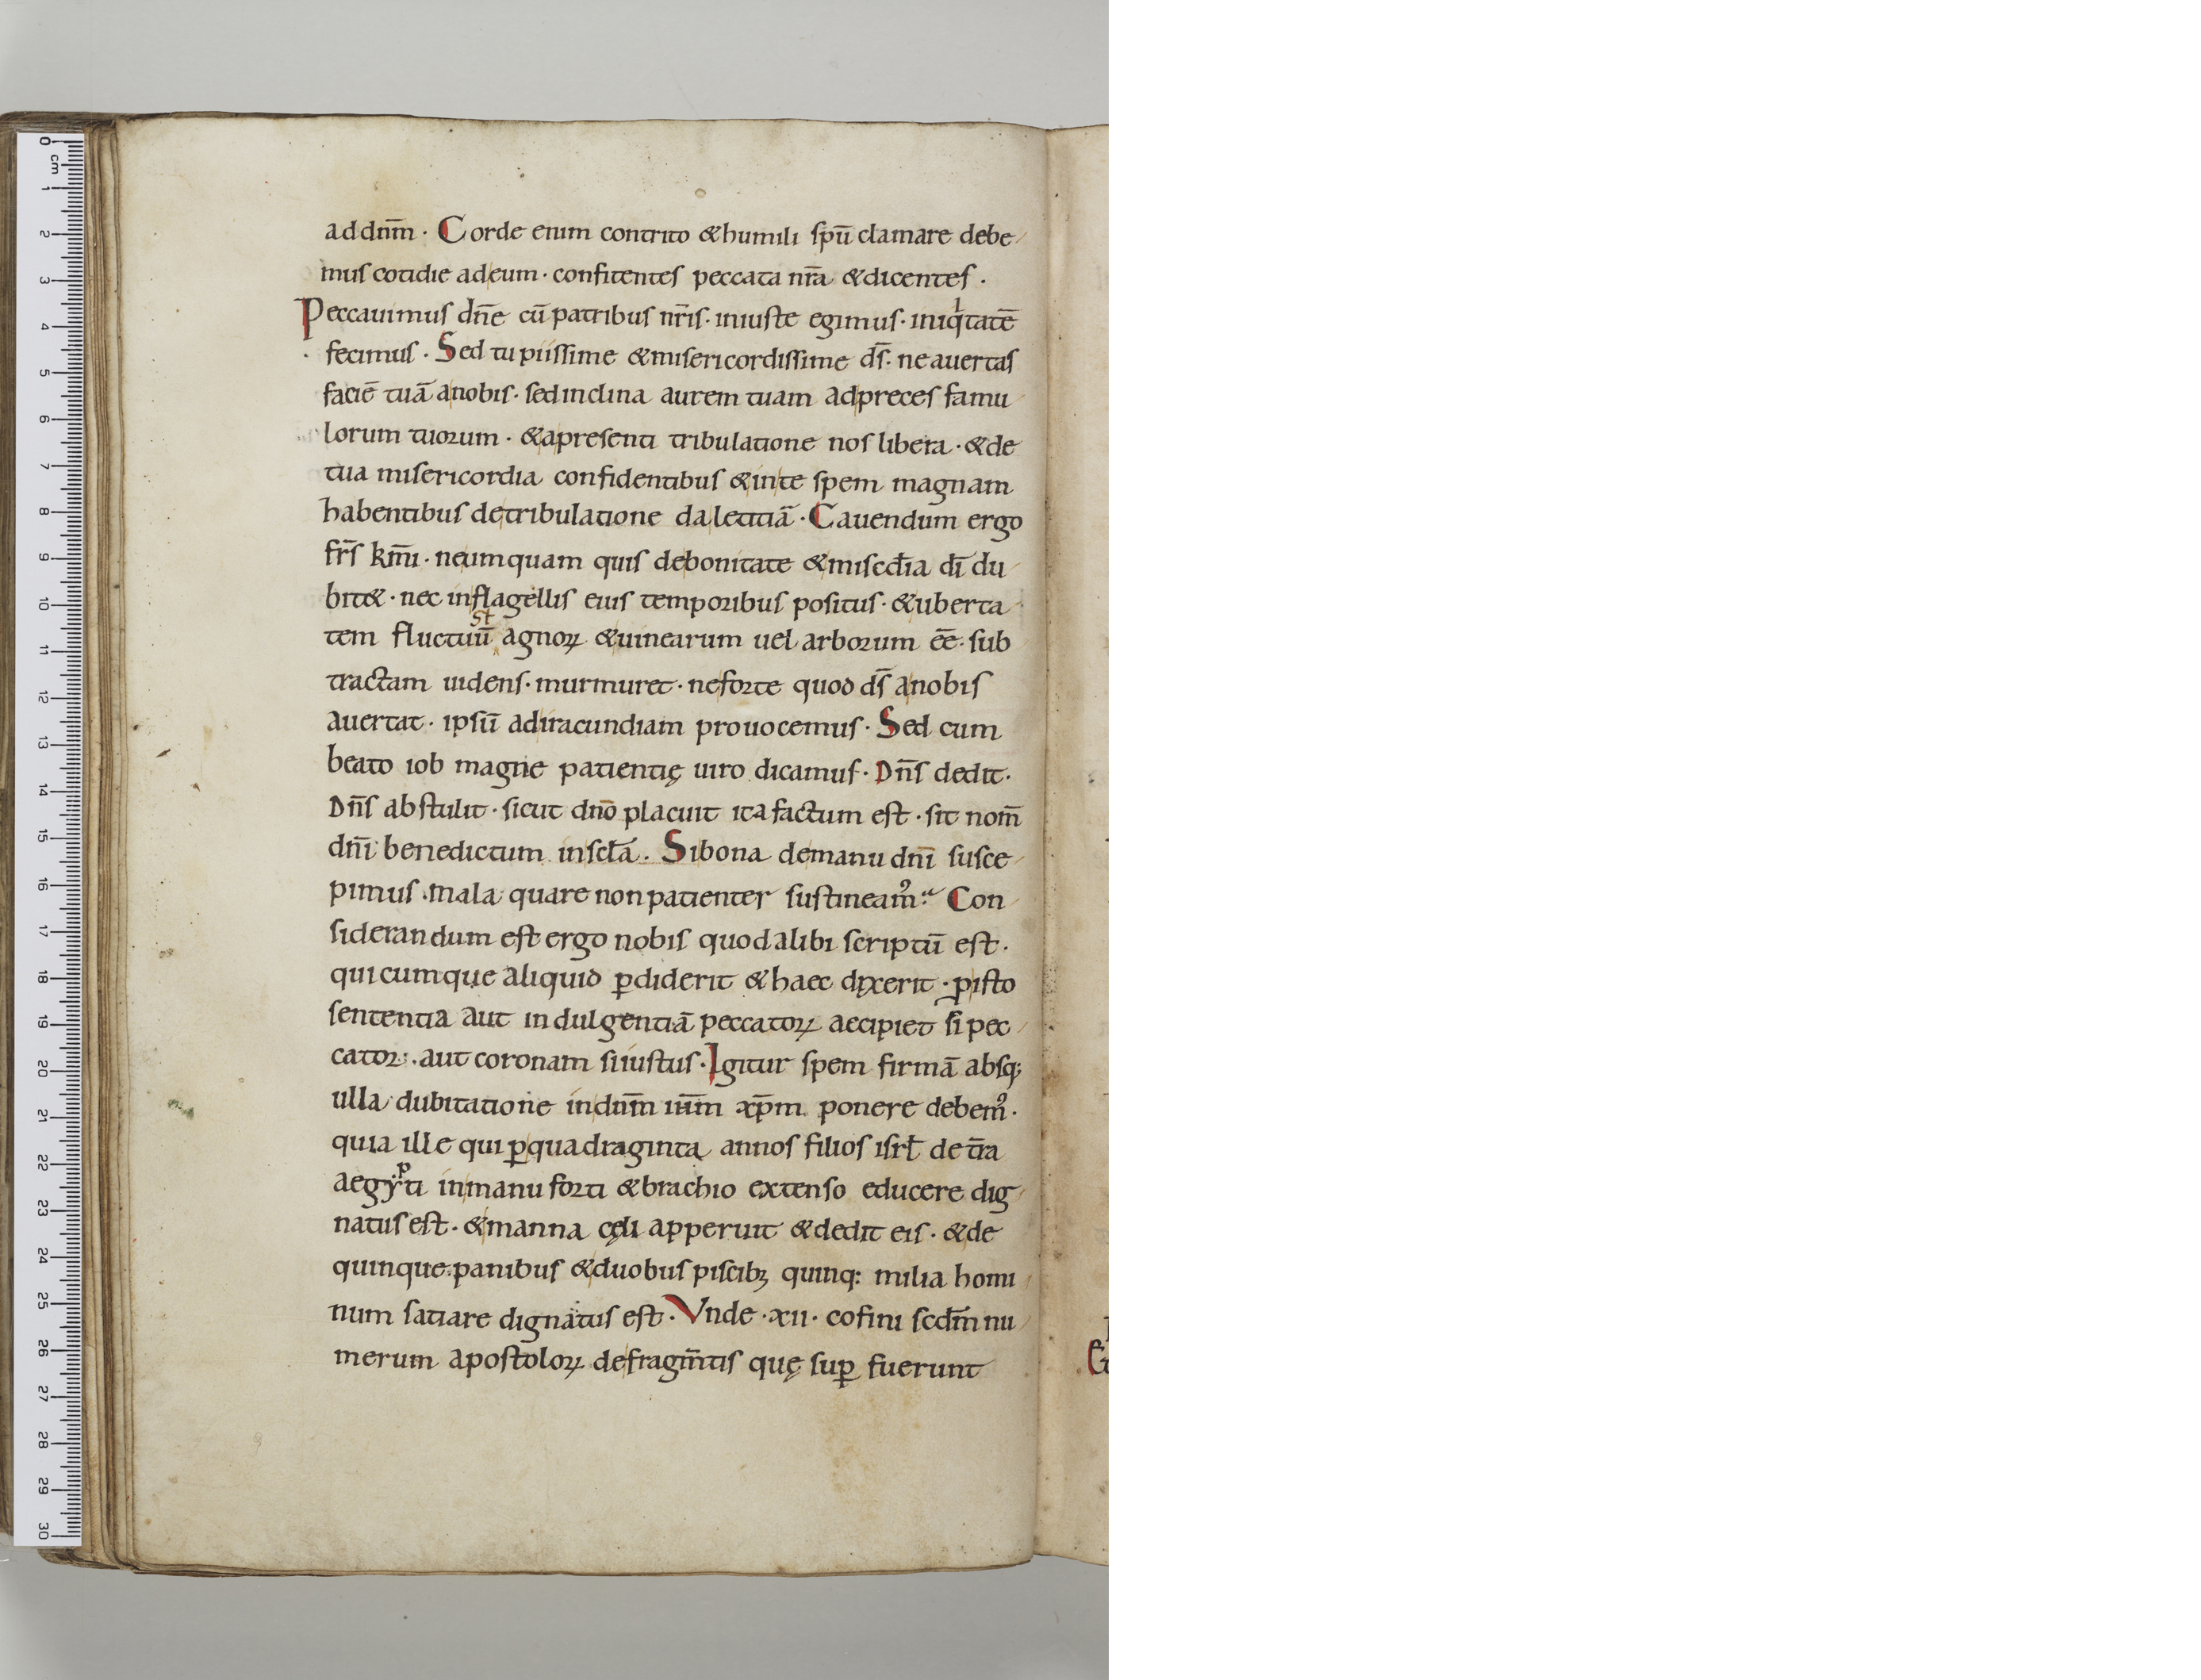 ad dnm̄ · Corde enim contrito & humili sp̄u clamare debe
mus cotidie ad eum · confitentes peccata nr̄a & dicentes ·
Peccauimus dn̄e cū patribus nr̄is · iniuste egimus · iniqͥtatē
fecimus · Sed tu piissime & misericordissime ds̄ · ne auertas
faciē tuā a nobis · sed inclina aurem tuam ad preces famu
lorum tuorum · & a presenti tribulatione nos libera · & de
tua misericordia confidentibus & in te spem magnam
habentibus de tribulatione da letitiā · Cauendum ergo
frs̄ km̄i · ne umquam quis de bonitate & miscđia dī du
bit& · nec in flagellis eius temporibus positus · & uberta
tem fluctuū agnoꝝ & uinearum uel arborum ēe · sub
tractam uidens · murmuret · ne forte quod ds̄ a nobis
auertat · ipsū ad iracundiam prouocemus · Sed cum
beato iob magne patientię uiro dicamus · Dn̄s dedit ·
Dn̄s abstulit · sicut dnō placuit ita factum est · sit nom̄
dn̄i benedictum in scła · Si bona de manu dnī susce
pimus · mala quare non patienter sustineam᷒ · Con
siderandum est ergo nobis quod alibi scriptū est ·
quicumque aliquid ꝑdiderit & haec dixerit · ꝓ isto
sententia aut indulgentiā peccatoꝝ accipiet si pec
cator · aut coronam si iustus · Igitur spem firmā absq;
ulla dubitatione in dnm̄ ihm̄ xp̄m ponere debem᷒ ·
quia ille qui ꝑ quadraginta annos filios isrł de tr̄a
aegypti in manu forti & brachio extenso educere dig
natus est · & manna cęli apperuit & dedit eis · & de
quinque panibus & duobus piscibꝫ quinq: milia homi
num satiare dignatus est · Vnde · xii · cofini scdm̄ nu
merum apostoloꝝ de fragm̄tis quę suꝑ fuerunt